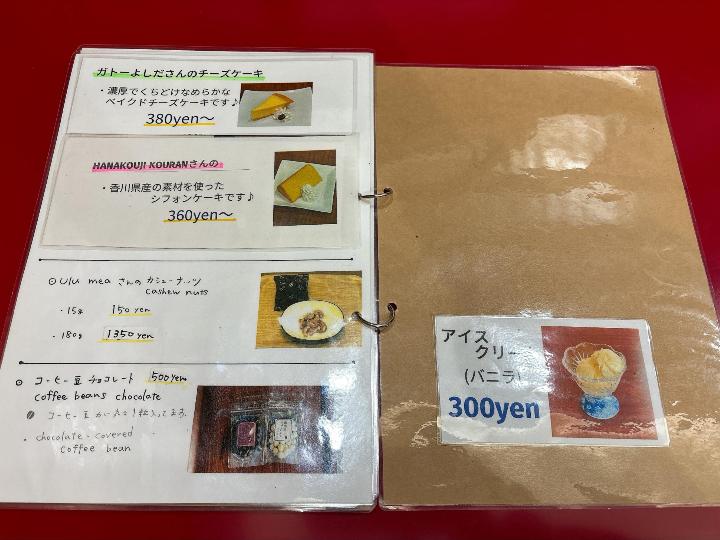 ガトーよしださんのチーズケーキ
・濃厚でくちどけなめらかな
ベイクドチーズケーキです♪
380yen〜
HANAKOUJI KOURANさんの
・香川県産の素材を使った
シフォンケーキです♪
360yen〜
◎ Ulu mea さんの カシューナッツ
cashew nuts
・15g 150 yen
・180g 1350 yen
◎ コーヒー豆 チョコレート 500yen
coffee beans chocolate
コーヒー豆が
・chocolate-covered
coffee bean
アイス
クリー
(バニラ)
300yen